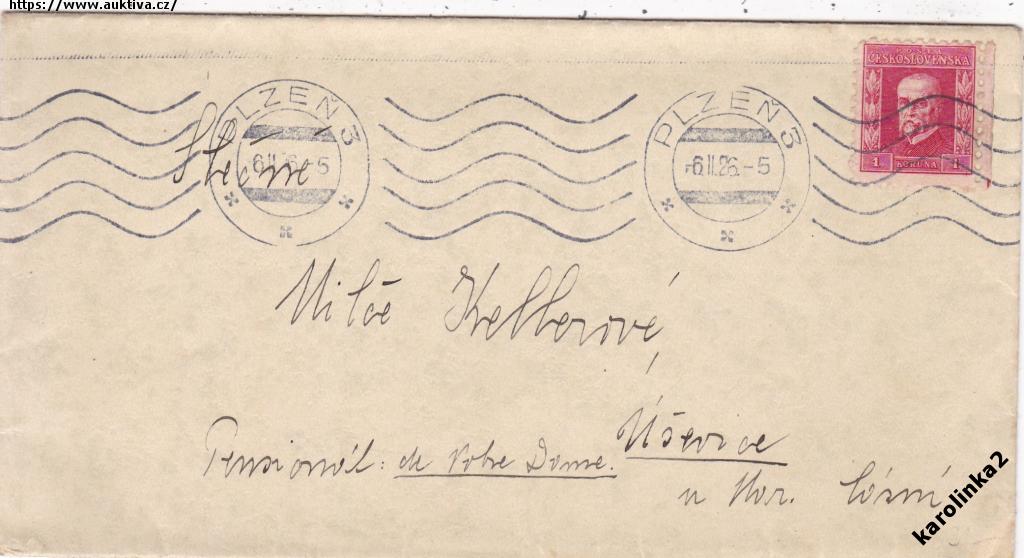 https://www.auktiva.cz/
POŠTA
ČESKOSLOVENSKÁ
1 KORUNA 1
PLZEŇ 3
6.II.26.-5
PLZEŇ 3
-6.II.26.-5
Slečně
Milče Kellerové,
Úševice
Pensionát: de Notre Dame.
u Hor.
karolinka2